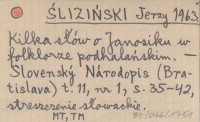 ŚLIZIŃSKI Jerzy 1963
Kilka słów o Janosiku w
folklorze podhalańskim. —
Slovenský Národopis (Bra-
tislava) t. 11, nr 1, s. 35-42,
streszczenie słowackie.
MT, TM